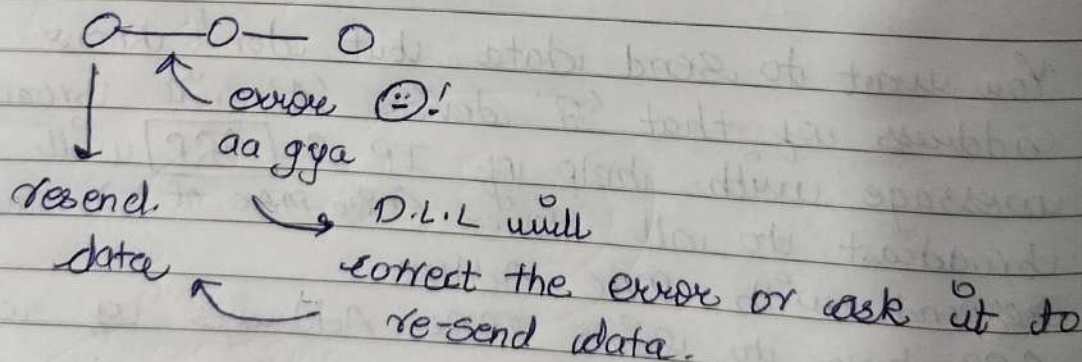 error !
aa gya
resend.
data
D.L.L will
correct the error or ask it to
re-send data.